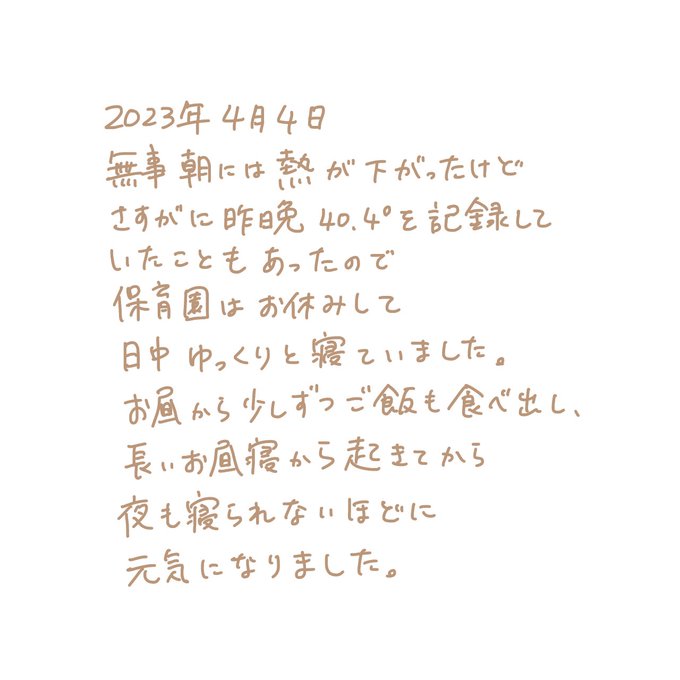 2023年4月4日
無事 朝には 熱が下がったけど
さすがに 昨晩 40.4°を記録して
いたことも あったので
保育園は お休みして
日中 ゆっくりと 寝ていました。
お昼から 少しずつ ご飯も食べ出し、
長いお昼寝から起きてから
夜も寝られないほどに
元気になりました。